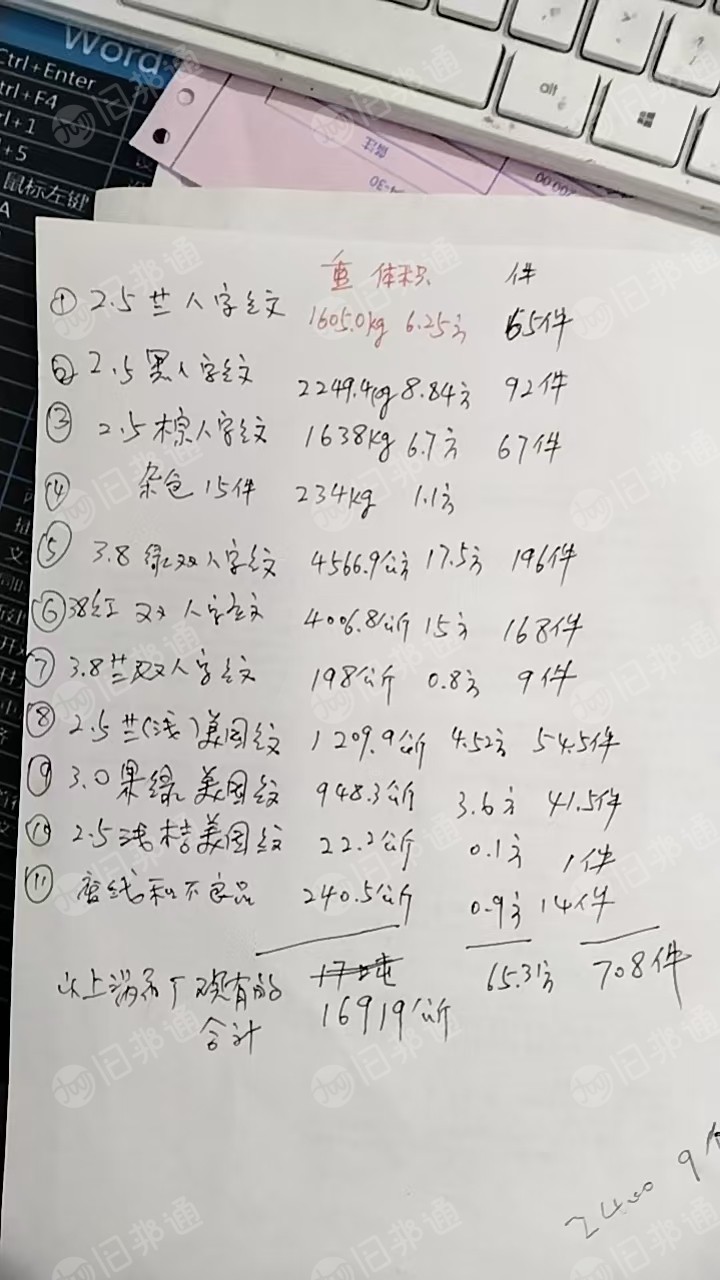 Word
Ctrl+Enter
trl+F4
rl+1
+5
鼠标左键
A
alt
备注
重 体积 件
① 2.5 兰人字纹 1605.0kg 6.25方 65件
② 2.5 黑人字纹 2249.4kg 8.84方 92件
③ 2.5 棕人字纹 1638kg 6.7方 67件
④ 杂色 15件 234kg 1.1方
⑤ 3.8 绿双人字纹 4566.9公斤 17.5方 196件
⑥ 38红 双人字纹 4006.8公斤 15方 168件
⑦ 3.8兰双人字纹 198公斤 0.8方 9件
⑧ 2.5兰(浅)美国纹 1209.9公斤 4.52方 54.5件
⑨ 3.0果绿美国纹 948.3公斤 3.6方 41.5件
⑩ 2.5浅桔美国纹 22.2公斤 0.1方 1件
⑪ 废线和不良品 240.5公斤 0.9方 14件
17吨 65.31方 708件
以上 厂现有的
合计 16919公斤
2400 9个
旧邦通